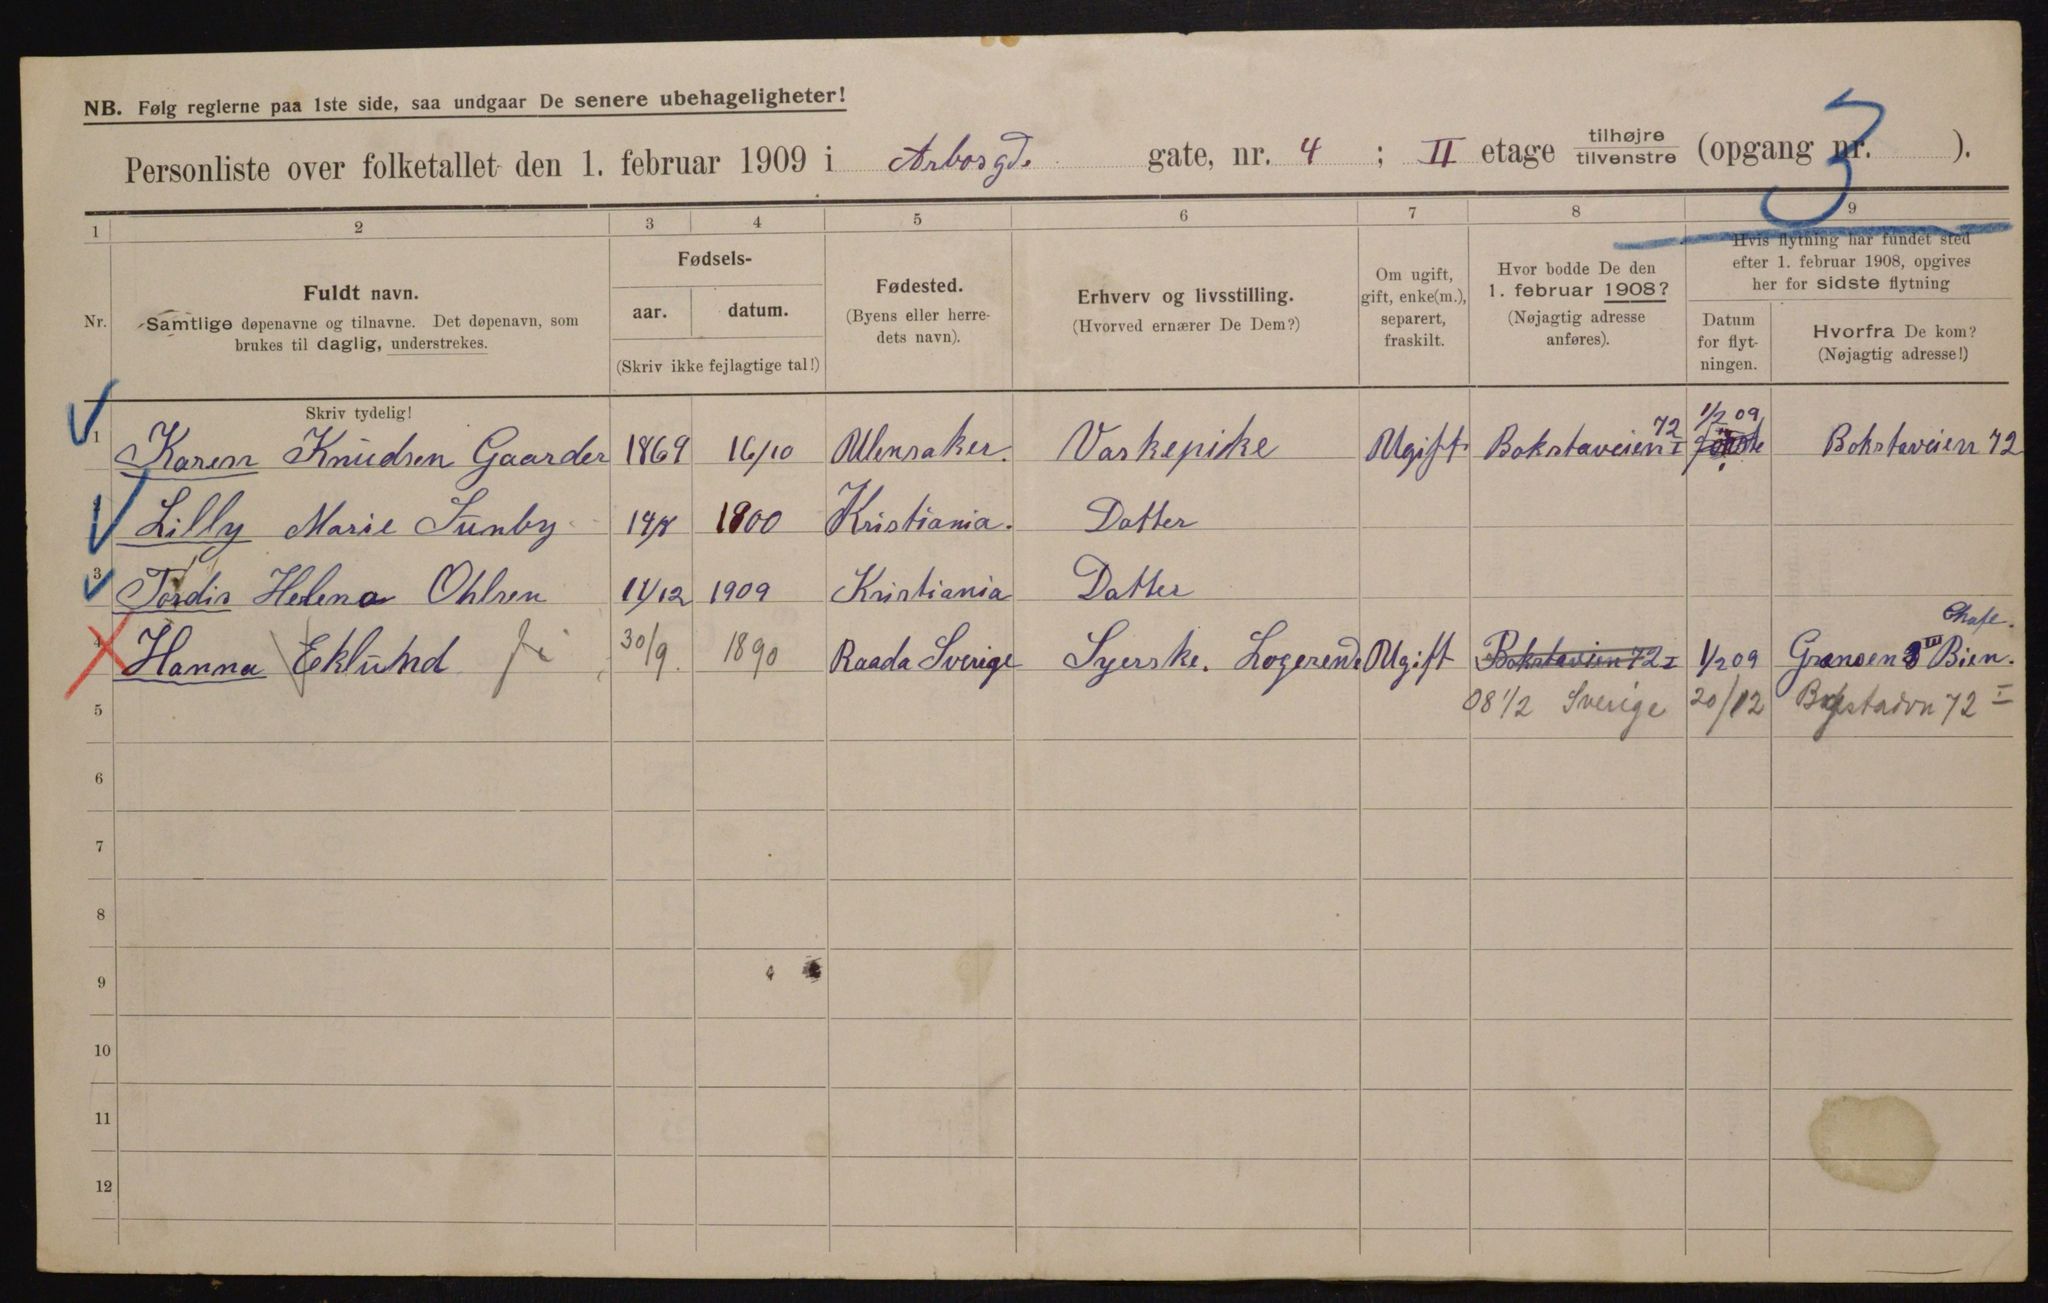 NB. Følg reglerne paa 1ste side, saa undgaar De senere ubehageligheter!
Personliste over folketallet den 1. februar 1909 i Arbosgd. gate, nr. 4 ; II etage tilhøjre/tilvenstre (opgang nr. 3 ).
1 2 3 4 5 6 7 8 9
Nr.
Fuldt navn.
Samtlige døpenavne og tilnavne. Det døpenavn, som
brukes til daglig, understrekes.
Fødsels-
aar. datum.
(Skriv ikke fejlagtige tal!)
Fødested.
(Byens eller herre-
dets navn).
Erhverv og livsstilling.
(Hvorved ernærer De Dem?)
Om ugift,
gift, enke(m.),
separert,
fraskilt.
Hvor bodde De den
1. februar 1908?
(Nøjagtig adresse
anføres).
Hvis flytning har fundet sted
efter 1. februar 1908, opgives
her for sidste flytning
Datum
for flyt-
ningen.
Hvorfra De kom?
(Nøjagtig adresse!)
Skriv tydelig!
1 Karen Knudsen Gaarder 1869 16/10 Ulensaker. Vaskepike Ugift Bokstaveien 72 I 1/2 09 Bokstaveien 72
Lilly Marie Sunby 14/8 1900 Kristiania. Datter
3 Tordis Helena Ohlsen 11/12 1909 Kristiania Datter
4 Hanna Eklund 30/9. 1890 Raada Sverige Syerske. Logerende Ugift Bokstaveien 72 I 1/2 09 Grensen 8 III Bien. Chafe.
5 08 1/2 Sverige 20/12 Bogstadvn 72 I
6
7
8
9
10
11
12